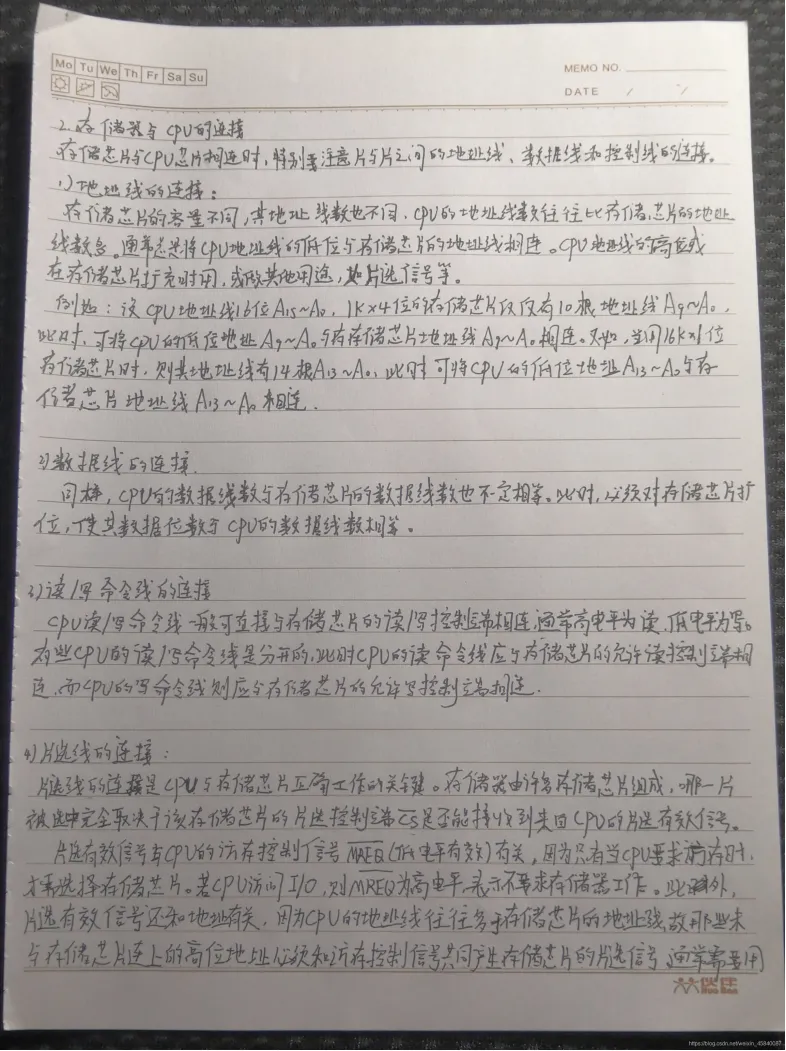 Mo Tu We Th Fr Sa Su
MEMO NO.
DATE / /
2.存储器与CPU的连接
存储芯片与CPU芯片相连时,特别要注意片与片之间的地址线、数据线和控制线的连接。
1)地址线的连接:
存储芯片的容量不同,其地址线数也不同,CPU的地址线数往往比存储芯片的地址
线数多。通常总是将CPU地址线的低位与存储芯片的地址线相连。CPU地址线的高位或
在存储芯片扩充时用,或做其他用途,如片选信号等。
例如:设CPU地址线16位A15~A0,1K×4位的存储芯片仅有10根地址线A9~A0,
此时,可将CPU的低位地址A9~A0与存储芯片地址线A9~A0相连。又如,当用16K×1位
存储芯片时,则其地址线有14根A13~A0,此时可将CPU的低位地址A13~A0与存
储芯片地址线A13~A0相连.
2)数据线的连接
同样,CPU的数据线数与存储芯片的数据线数也不一定相等。此时,必须对存储芯片扩
位,使其数据位数与CPU的数据线数相等。
3)读/写命令线的连接
CPU读/写命令线一般可直接与存储芯片的读/写控制端相连,通常高电平为读,低电平为写。
有些CPU的读/写命令线是分开的,此时CPU的读命令线应与存储芯片的允许读控制端相
连,而CPU的写命令线则应与存储芯片的允许写控制端相连.
4)片选线的连接:
片选线的连接是CPU与存储芯片正确工作的关键。存储器由许多存储芯片组成,哪一片
被选中完全取决于该存储芯片的片选控制端CS是否能接收到来自CPU的片选有效信号。
片选有效信号与CPU的访存控制信号MREQ(低电平有效)有关,因为只有当CPU要求访存时,
才要选择存储芯片。若CPU访问I/O,则MREQ为高电平,表示不要求存储器工作。此外,
片选有效信号还和地址有关,因为CPU的地址线往往多于存储芯片的地址线,故那些未
与存储芯片连上的高位地址必须和访存控制信号共同产生存储芯片的片选信号,通常需要用
伙伴
https://blog.csdn.net/weixin_45840087